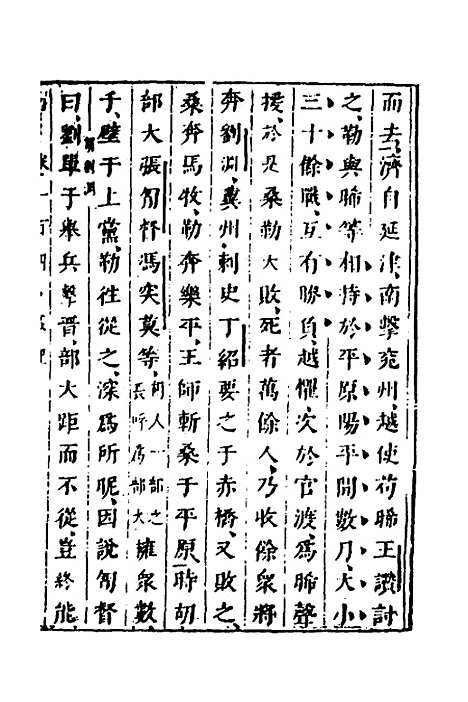 而去濟自延津南擊兗州越使苟晞王讚討
之勒與晞等相持於平原陽平間數月大小
三十餘戰互有勝負越懼次於官渡爲晞聲
援於是桑勒大敗死者萬餘人乃收餘衆將
奔劉淵冀州刺史丁紹要之于赤橋又敗之
桑奔馬牧勒奔樂平王師斬桑于平原時胡
部大張㔨督馮突莫等胡人一部之長呼爲部大擁衆數
千壁于上黨勒往從之深爲所昵因說㔨督
曰劉單于舉兵擊晋部大距而不從豈終能